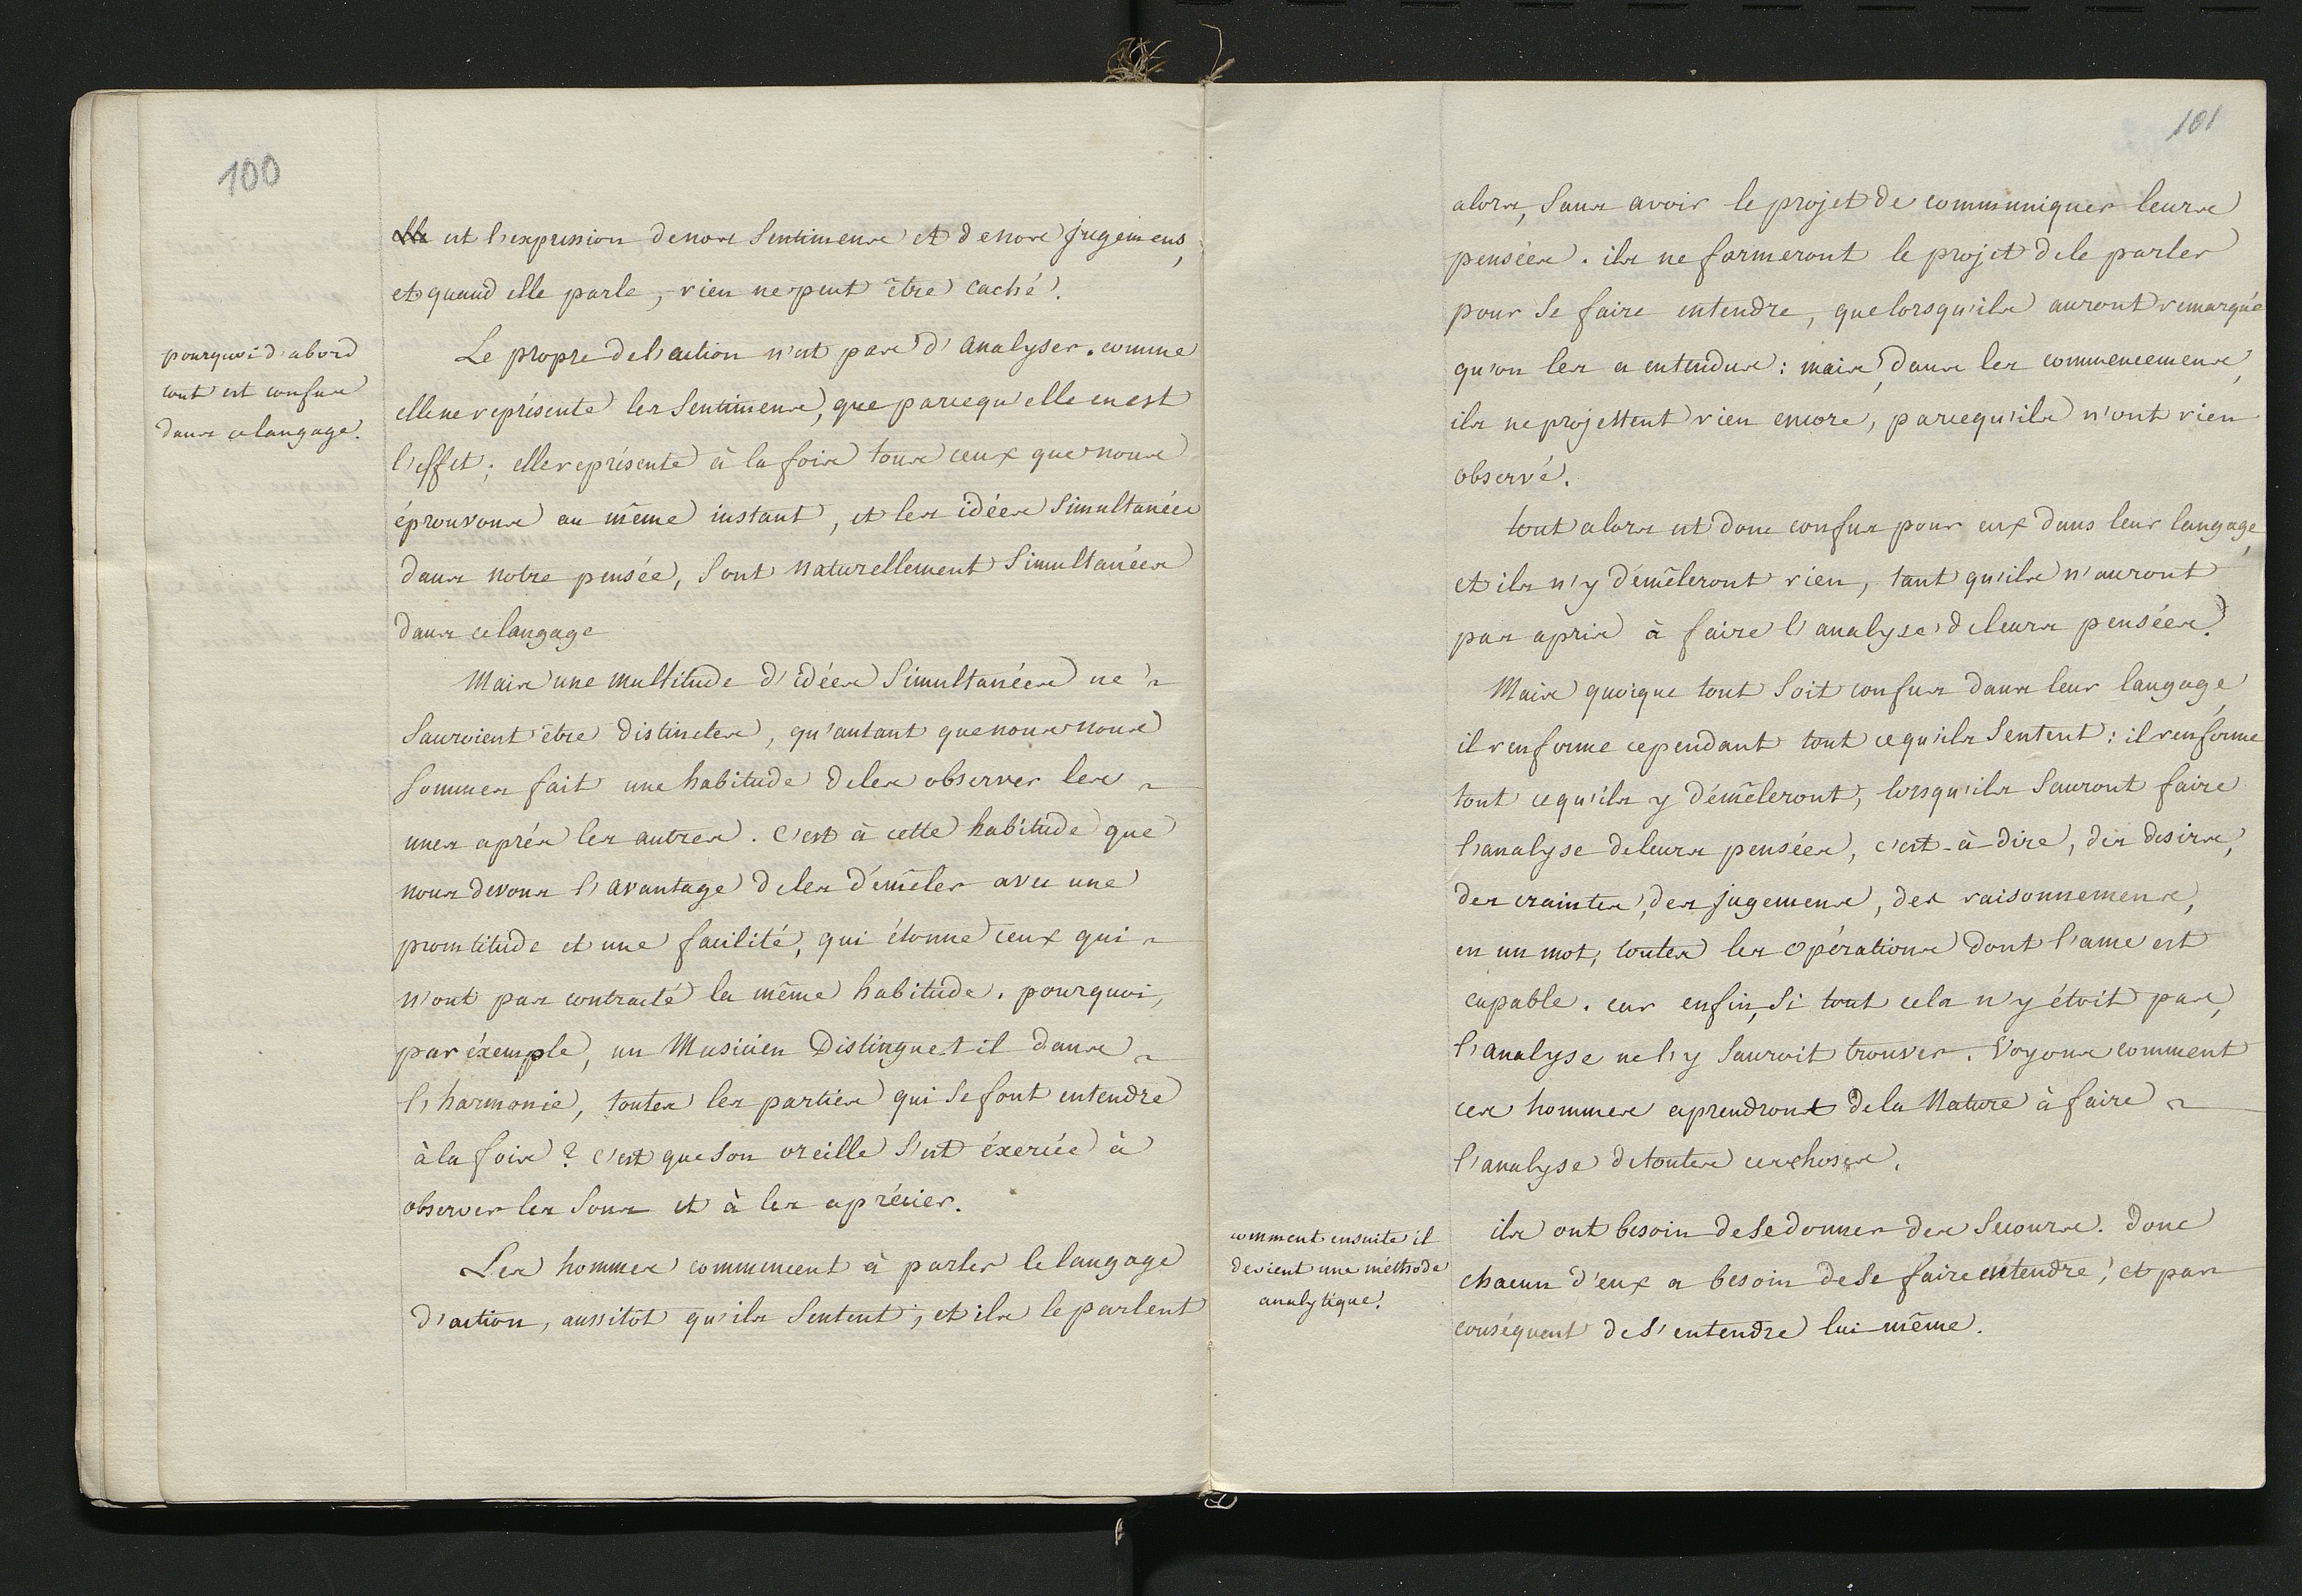 100
est l'expression de nos Sentimens et de nos jugemens,
et quand elle parle, rien ne peut être caché.
pourquoi d'abord
tout est confus
dans ce langage.
Le propre de l'action n'est pas d'analyser. comme
elle ne représente les Sentimens, que parcequ'elle en est
l'effet; elle représente à la fois tous ceux que nous
éprouvons au même instant, et les idées Simultanées
dans notre pensée, Sont naturellement Simultanées
dans ce langage
Mais une multitude d'idées Simultanées ne
Sauroient être distinctes, qu'autant que nous nous
Sommes fait une habitude de les observer les
unes après les autres. C'est à cette habitude que
nous devons l'avantage de les démêler avec une
promtitude et une facilité, qui étonne ceux qui
n'ont pas contracté la même habitude. pourquoi,
par éxemple, un Musicien Distingue t il dans
l'harmonie, toutes les parties qui Se font entendre
à la fois? C'est que Son oreille S'est éxercée à
observer les Sons et à les aprécier.
Les hommes commencent à parler le langage
d'action, aussitôt qu'ils Sentent; et ils le parlent
101
alors, Sans avoir le projet de communiquer leurs
pensées. ils ne formeront le projet de le parler
pour Se faire entendre, que lorsqu'ils auront remarqué
qu'on les a entendus: mais, dans les commencemens,
ils ne projettent rien encore, parcequ'ils n'ont rien
observé.
tout alors est donc confus pour eux dans leur langage,
et ils n'y démêleront rien, tant qu'ils n'auront
pas apris à faire l'analyse de leurs pensées.
Mais quoique tout Soit confus dans leur langage,
il renferme cependant tout ce qu'ils Sentent: il renferme
tout ce qu'ils y démêleront, lorsqu'ils Sauront faire
l'analyse de leurs pensées, c'est-à-dire, des desirs,
des craintes, des jugemens, des raisonnemens,
en un mot, toutes les opérations dont l'ame est
capable. car enfin, Si tout cela n'y étoit pas,
l'analyse ne l'y Sauroit trouver. Voyons comment
ces hommes aprendront de la Nature à faire
l'analyse de toutes ces choses.
comment ensuite il
devient une méthode
analytique.
ils ont besoin de Se donner des Secours. Donc
chacun d'eux a besoin de Se faire entendre, et par
conséquent de S'entendre lui-même.